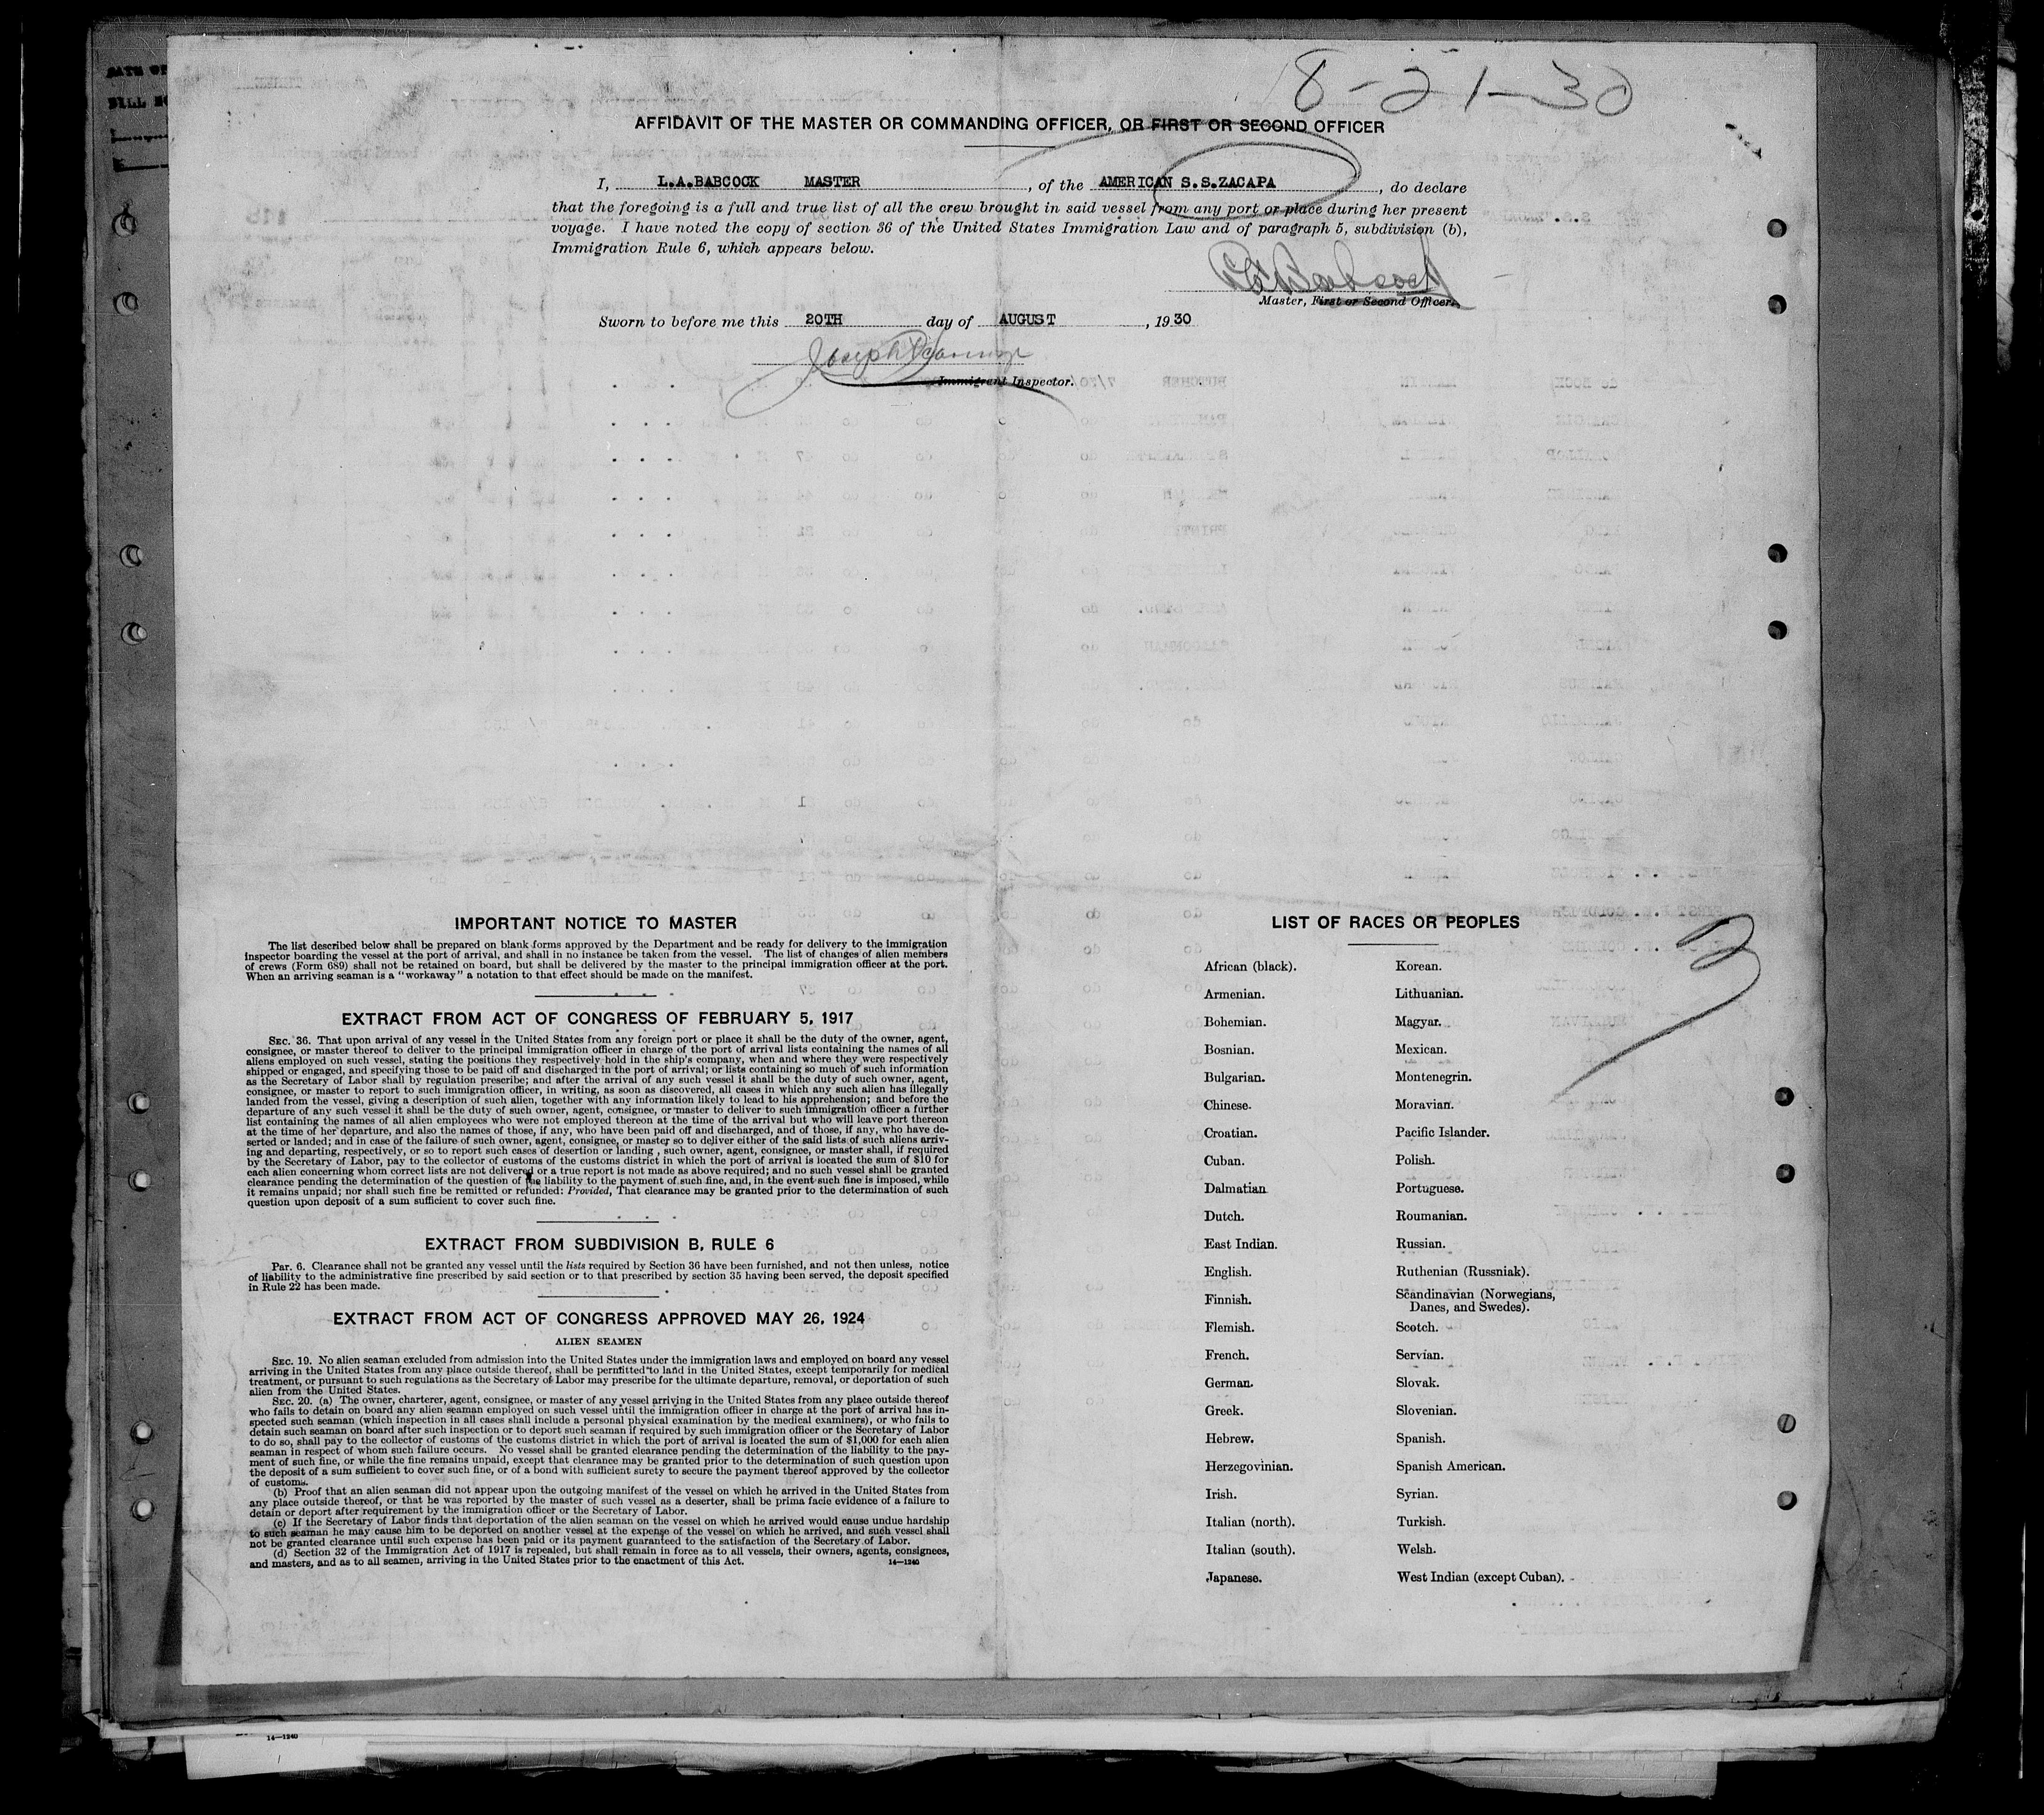 8-21-30
AFFIDAVIT OF THE MASTER OR COMMANDING OFFICER, OR FIRST OR SECOND OFFICER
I, L.A.BABCOCK MASTER , of the AMERICAN S.S.ZACAPA , do declare
that the foregoing is a full and true list of all the crew brought in said vessel from any port or place during her present
voyage. I have noted the copy of section 36 of the United States Immigration Law and of paragraph 5, subdivision (b),
Immigration Rule 6, which appears below.
Babcock
Master, First or Second Officer.
Sworn to before me this 20TH day of AUGUST , 1930
Joseph
Immigrant Inspector.
IMPORTANT NOTICE TO MASTER
The list described below shall be prepared on blank forms approved by the Department and be ready for delivery to the immigration
inspector boarding the vessel at the port of arrival, and shall in no instance be taken from the vessel. The list of changes of alien members
of crews (Form 689) shall not be retained on board, but shall be delivered by the master to the principal immigration officer at the port.
When an arriving seaman is a "workaway" a notation to that effect should be made on the manifest.
EXTRACT FROM ACT OF CONGRESS OF FEBRUARY 5, 1917
SEC. 36. That upon arrival of any vessel in the United States from any foreign port or place it shall be the duty of the owner, agent,
consignee, or master thereof to deliver to the principal immigration officer in charge of the port of arrival lists containing the names of all
aliens employed on such vessel, stating the positions they respectively hold in the ship's company, when and where they were respectively
shipped or engaged, and specifying those to be paid off and discharged in the port of arrival; or lists containing so much of such information
as the Secretary of Labor shall by regulation prescribe; and after the arrival of any such vessel it shall be the duty of such owner, agent,
consignee, or master to report to such immigration officer, in writing, as soon as discovered, all cases in which any such alien has illegally
landed from the vessel, giving a description of such alien, together with any information likely to lead to his apprehension; and before the
departure of any such vessel it shall be the duty of such owner, agent, consignee, or master to deliver to such immigration officer a further
list containing the names of all alien employees who were not employed thereon at the time of the arrival but who will leave port thereon
at the time of her departure, and also the names of those, if any, who have been paid off and discharged, and of those, if any, who have de-
serted or landed; and in case of the failure of such owner, agent, consignee, or master so to deliver either of the said lists of such aliens arriv-
ing and departing, respectively, or so to report such cases of desertion or landing , such owner, agent, consignee, or master shall, if required
by the Secretary of Labor, pay to the collector of customs of the customs district in which the port of arrival is located the sum of $10 for
each alien concerning whom correct lists are not delivered or a true report is not made as above required; and no such vessel shall be granted
clearance pending the determination of the question of the liability to the payment of such fine, and, in the event such fine is imposed, while
it remains unpaid; nor shall such fine be remitted or refunded: Provided, That clearance may be granted prior to the determination of such
question upon deposit of a sum sufficient to cover such fine.
EXTRACT FROM SUBDIVISION B, RULE 6
Par. 6. Clearance shall not be granted any vessel until the lists required by Section 36 have been furnished, and not then unless, notice
of liability to the administrative fine prescribed by said section or to that prescribed by section 35 having been served, the deposit specified
in Rule 22 has been made.
EXTRACT FROM ACT OF CONGRESS APPROVED MAY 26, 1924
ALIEN SEAMEN
SEC. 19. No alien seaman excluded from admission into the United States under the immigration laws and employed on board any vessel
arriving in the United States from any place outside thereof, shall be permitted to land in the United States, except temporarily for medical
treatment, or pursuant to such regulations as the Secretary of Labor may prescribe for the ultimate departure, removal, or deportation of such
alien from the United States.
SEC. 20. (a) The owner, charterer, agent, consignee, or master of any vessel arriving in the United States from any place outside thereof
who fails to detain on board any alien seaman employed on such vessel until the immigration officer in charge at the port of arrival has in-
spected such seaman (which inspection in all cases shall include a personal physical examination by the medical examiners), or who fails to
detain such seaman on board after such inspection or to deport such seaman if required by such immigration officer or the Secretary of Labor
to do so, shall pay to the collector of customs of the customs district in which the port of arrival is located the sum of $1,000 for each alien
seaman in respect of whom such failure occurs. No vessel shall be granted clearance pending the determination of the liability to the pay-
ment of such fine, or while the fine remains unpaid, except that clearance may be granted prior to the determination of such question upon
the deposit of a sum sufficient to cover such fine, or of a bond with sufficient surety to secure the payment thereof approved by the collector
of customs.
(b) Proof that an alien seaman did not appear upon the outgoing manifest of the vessel on which he arrived in the United States from
any place outside thereof, or that he was reported by the master of such vessel as a deserter, shall be prima facie evidence of a failure to
detain or deport after requirement by the immigration officer or the Secretary of Labor.
(c) If the Secretary of Labor finds that deportation of the alien seaman on the vessel on which he arrived would cause undue hardship
to such seaman he may cause him to be deported on another vessel at the expense of the vessel on which he arrived, and such vessel shall
not be granted clearance until such expense has been paid or its payment guaranteed to the satisfaction of the Secretary of Labor.
(d) Section 32 of the Immigration Act of 1917 is repealed, but shall remain in force as to all vessels, their owners, agents, consignees,
and masters, and as to all seamen, arriving in the United States prior to the enactment of this Act.
14—1240
LIST OF RACES OR PEOPLES
African (black).
Armenian.
Bohemian.
Bosnian.
Bulgarian.
Chinese.
Croatian.
Cuban.
Dalmatian
Dutch.
East Indian.
English.
Finnish.
Flemish.
French.
German.
Greek.
Hebrew.
Herzegovinian.
Irish.
Italian (north).
Italian (south).
Japanese.
Korean.
Lithuanian.
Magyar.
Mexican.
Montenegrin.
Moravian.
Pacific Islander.
Polish.
Portuguese.
Roumanian.
Russian.
Ruthenian (Russniak).
Scandinavian (Norwegians,
Danes, and Swedes).
Scotch.
Servian.
Slovak.
Slovenian.
Spanish.
Spanish American.
Syrian.
Turkish.
Welsh.
West Indian (except Cuban).
14—1240